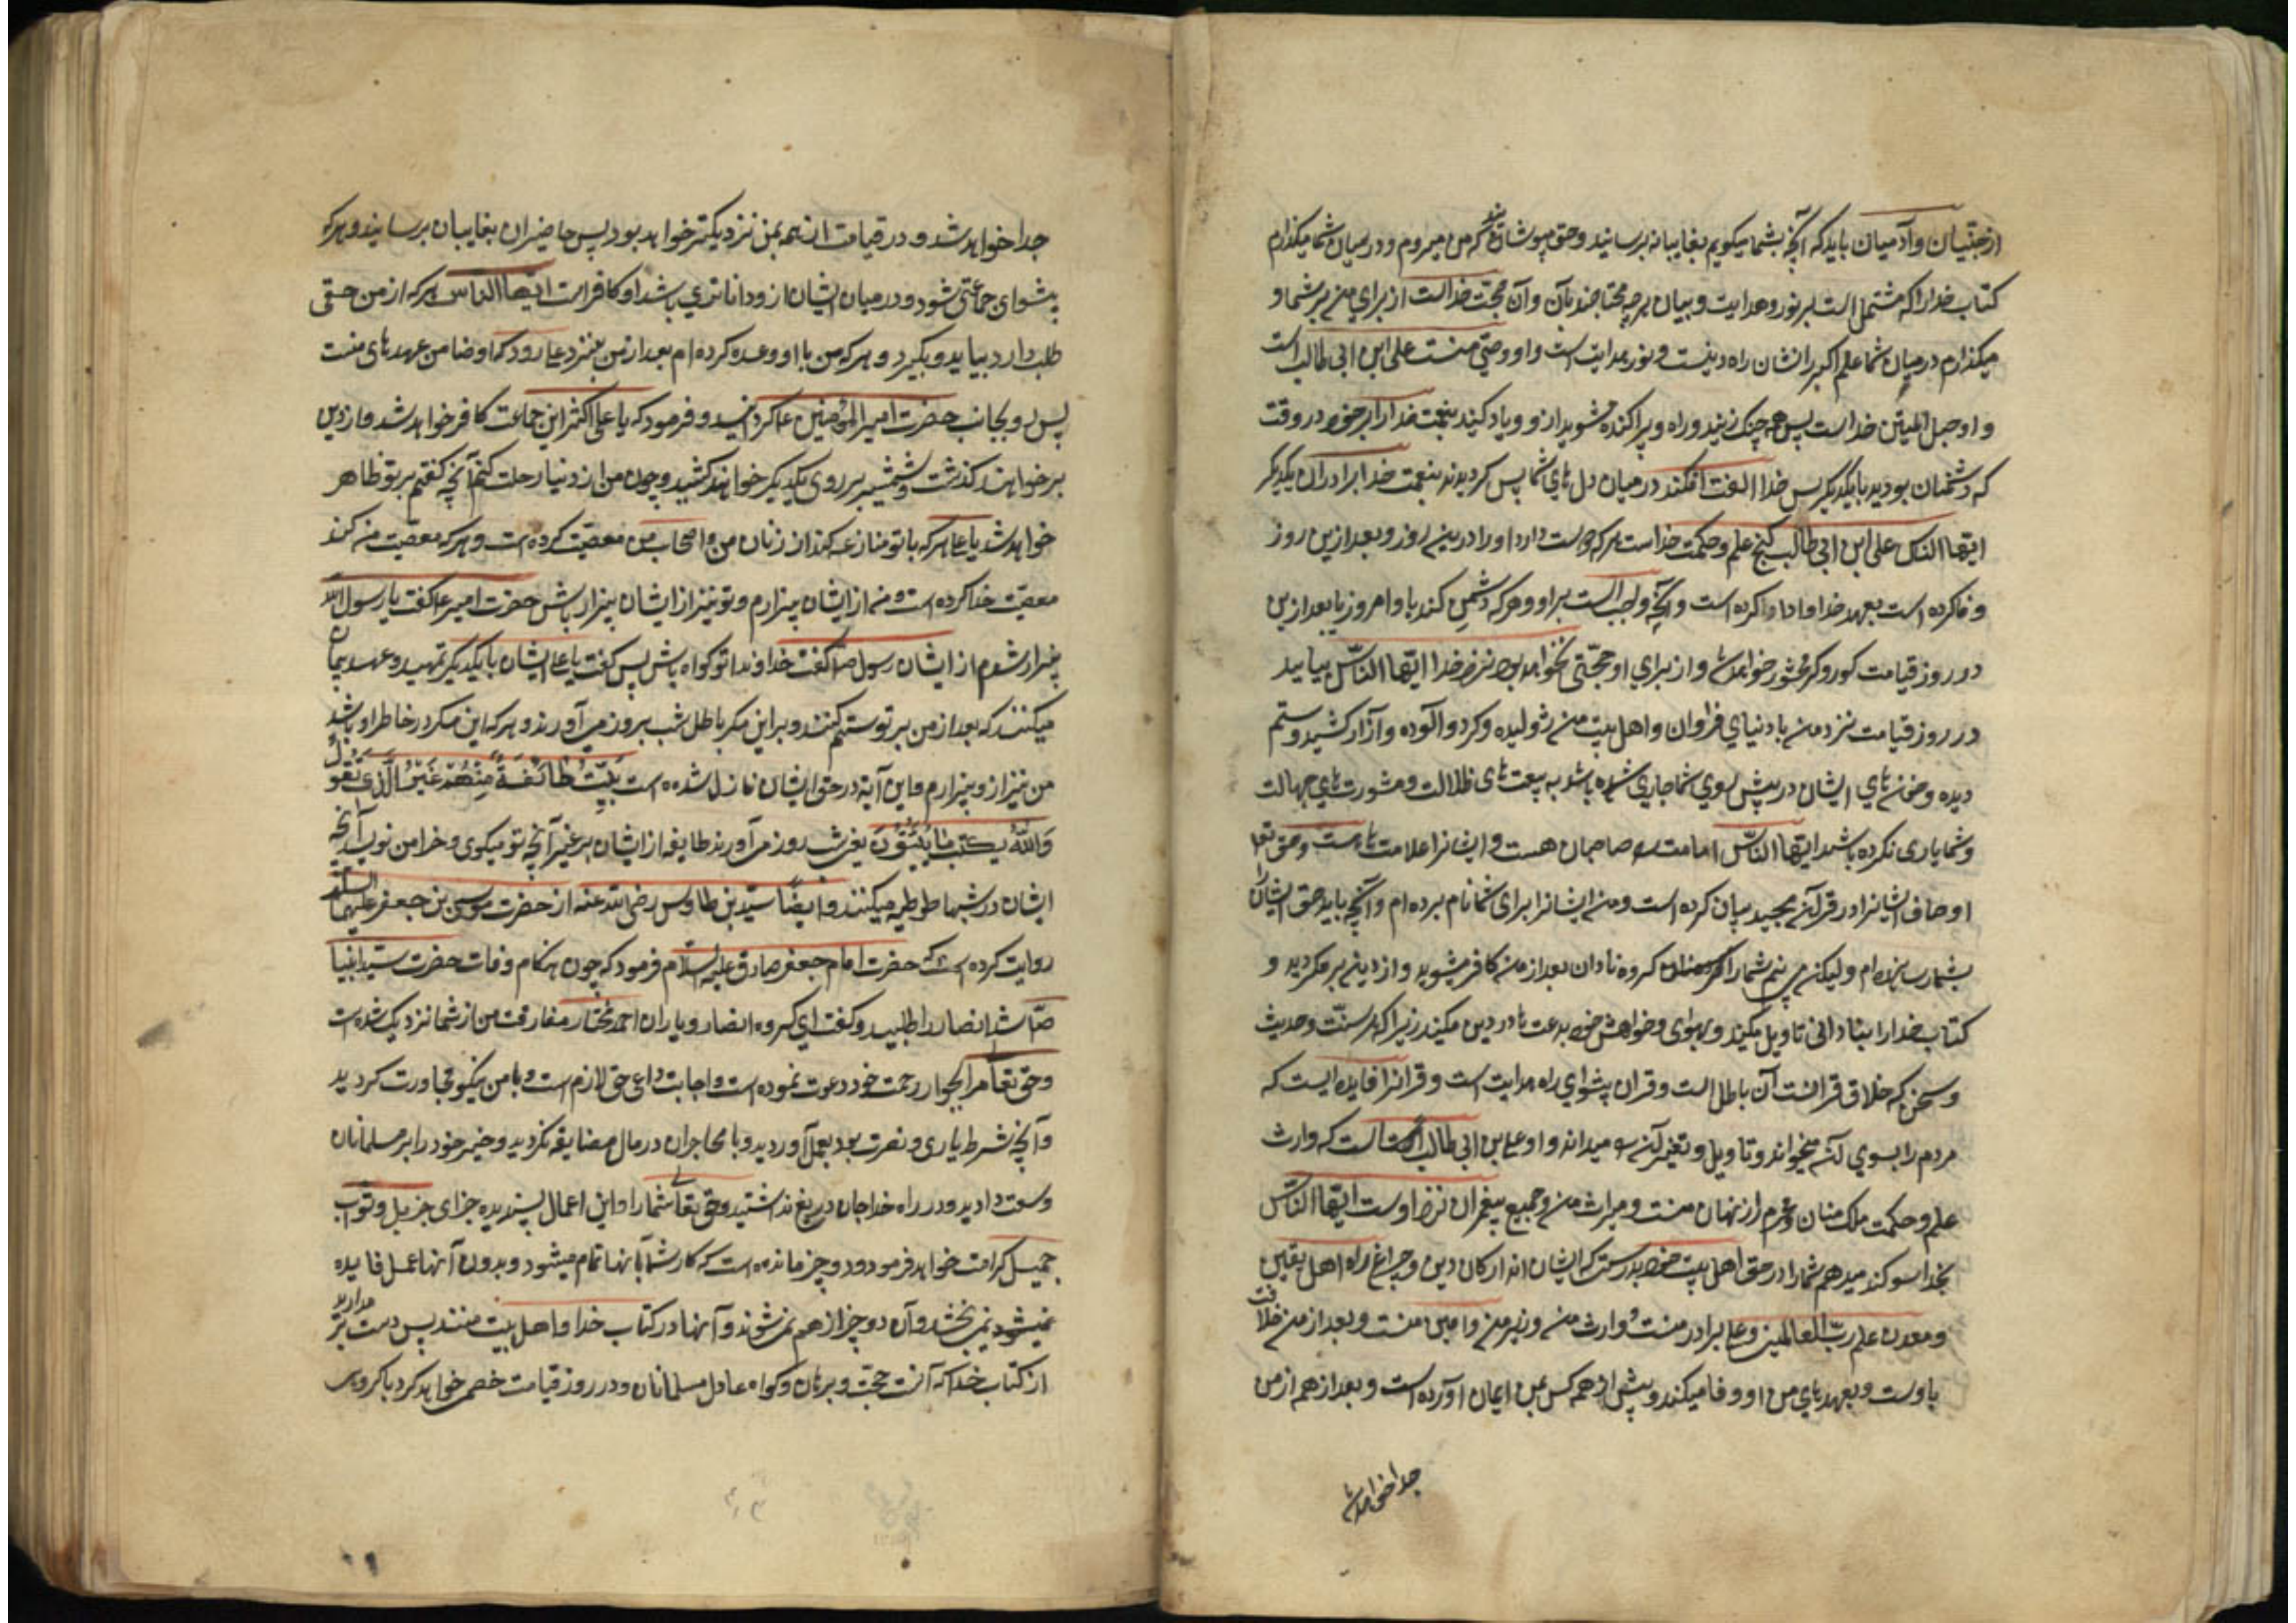 از جنّیان و آدمیان باید که آنچه بشما میکویم بغایبانه برسانید وحق میروم و در میان شما میکذارم
کتاب خدا را که مشتمل است بر نور و هدایت و بیان هرچه محتاجند بآن و آن حجّت خداست از برای من بر شما و
میکذارم در میان شما علم اکبر را نشان راه دینست و نور هدایت است و او وصیّ منست علی ابن ابی طالب است
و او حبل المتین خداست پس همه چنک زنید و راه و پراکنده مشوید از و و یاد کنید نعمت خدا را بر خود در وقت
که دشمنان بودید با یکدیکر پس خدا الفت افکند در میان دل های شما پس کردیدید بنعمت خدا برادران یکدیکر
ایّها النّاس علی ابن ابی طالب کنج علم و حکمت خداست هر که دوست دارد او را درین روز و بعد ازین روز
وفا کرده است بعهد خدا و ادا کرده است و آنچه واجب است بر او و هر که دشمنی کند با او امروز یا بعد ازین
در روز قیامت کور و کر محشور خواهد شد و از برای او حجّتی نخواهد بود نزد خدا ایّها النّاس بیایید
در روز قیامت نزد من با دنیای فراوان و اهل بیت من ژولیده و کرد آلوده و آزار کشیده و ستم
دیده و خون های ایشان در پیش روی شما جاری شده باشد به بیعت های ظلالت و مشورت های جهالت
و شما یاری نکرده باشید ایّها النّاس امامت را صاحبان هست و ایشانرا علامت هاست و حق تعا
اوصاف ایشانرا در قرآن مجید بیان کرده است و من ایشانرا برای شما نام برده ام و آنچه باید حق ایشان را
بشما رسانیده ام ولیکن می بینم شما را کروه نادان بعد از من کافر میشوید و از دین بر میکردید و
کتاب خدا را بنادانی تاویل میکنید و بهوای و خواهش خود بدعت ها در دین میکنید زیرا که هر سنّت و حدیث
و سخن که خلاف قرآنست آن باطل است و قران پیشوای راه هدایت است و قرانرا فایده ایست که
مردم را بسوی آن میخواند و تاویل و تفسیر آن را میداند و او علی بن ابی طالب است که وارث
علم و حکمت منست و محرم راز نهان منست و میراث من و جمیع پیغمبران نزد اوست ایّها النّاس
بخدا سوکند میدهم شما را در حق اهل بیت خود بدرستی که ایشان اند ارکان دین و چراغ راه اهل یقین
و معدن علم ربّ العالمین و علی برادر منست و وارث من و وزیر من و امین منست و بعد از من خلافت
با اوست و بعهدهای من او وفا میکند و پیش از همه کس بمن ایمان آورده است و بعد از همه از من
جدا خواهد شد
جدا خواهد شد و در قیامت از همه بمن نزدیکتر خواهد بود پس حاضران بغایبان برسانید و هر که
پیشوای جماعتی شود و در میان ایشان از و داناتری باشد او کافر است ایّها النّاس هر که از من حقی
طلب دارد بیاید و بکیرد و هر که من با او وعده کرده ام بعد از من بنزد علی رود که او ضامن عهدهای منست
پس رو بجانب حضرت امیر المؤمنین ع کردانید و فرمود که یا علی اکثر این جماعت کافر خواهد شد و از دین
بر خواهند کذشت و شمشیر بر روی یکدیکر خواهند کشید و چون من از دنیا رحلت کنم آنچه کفتم بر تو ظاهر
خواهد شد یا علی هر که با تو منازعه کند از زنان من و اصحاب من معصیت کرده است و هر که معصیت من کند
معصیت خدا کرده است و من از ایشان بیزارم و تو نیز از ایشان بیزار باش حضرت امیر ع کفت یا رسول اللّه
بیزار شدم از ایشان رسول ص کفت خداوندا تو کواه باش پس کفت یا علی ایشان با یکدیکر تمهید و عهد پیمان
میکنند که بعد از من بر تو ستم کنند و بر این مکر باطل شب بروز می آورند و هر که این مکر در خاطر او باشد
من نیز از و بیزارم و این آیه در حق ایشان نازل شده است بَیَّتَ طائفَةٌ مِنْهُمْ غَیْرَ الَّذی تَقُولُ
وَاللّهُ یَکتبُ ما یُبَیّتُونَ یعنی شب بروز می آورند طایفه از ایشان بر غیر آنچه تو میکوی و خدا می نویسد آنچه
ایشان در شبها طوطیه میکنند و ایضًا سیّد بن طاوس رضی الله عنه از حضرت موسی بن جعفر علیهما السلم
روایت کرده است که حضرت امام جعفر صادق علیه السّلام فرمود که چون هنکام وفات حضرت سیّد انبیا
ص شد انصار را طلبید و کفت ای کروه انصار و یاران احمد مختار مفارقت من از شما نزدیک شده است
و حق تعا مرا بجوار رحمت خود دعوت نموده است و اجابت داعی حق لازم است و با من نیکو مجاورت کردید
و آنچه شرط یاری و نصرت بود بعمل آوردید و با مهاجران در مال مضایقه نکردید و خیر خود را بر مسلمانان
وسعت دادید و در راه خدا جان دریغ نداشتید و حق تعا شما را و این اعمال پسندیده جزای جزیل و ثواب
جمیل کرامت خواهد فرمود و دو چیز مانده است که کار شما بآنها تمام میشود و بدون آنها عمل فایده
نمی بخشد و آن دو چیز از هم نمی شوند و آنها در کتاب خدا و اهل بیت منند پس دست بر مدارید
از کتاب خدا که آنست حجّت و برهان و کواه عادل مسلمانان و در روز قیامت خصمی خواهد کرد با کروهی